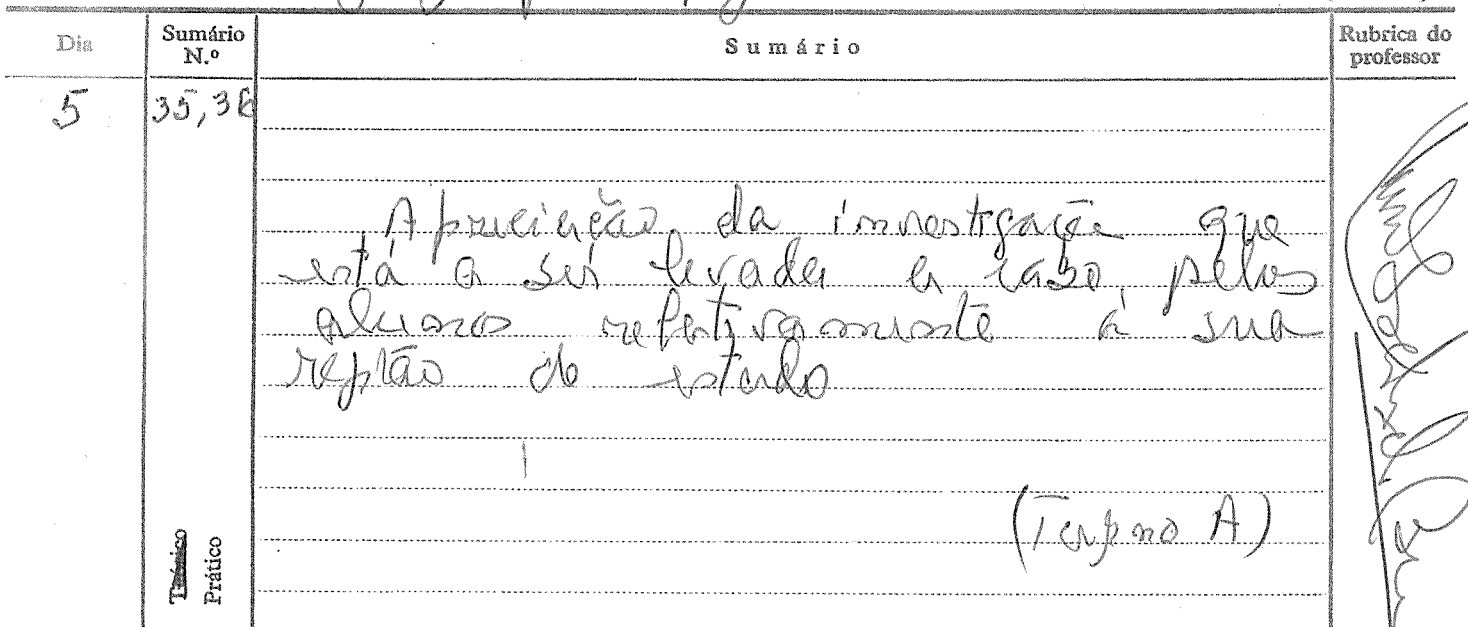 Dia Sumário N.º Sumário Rubrica do professor
5 35,36
Apreciação da investigação que
está a ser levada a cabo, pelos
alunos relativamente à sua
região de estudo
(Turma A)
Teórico
Prático